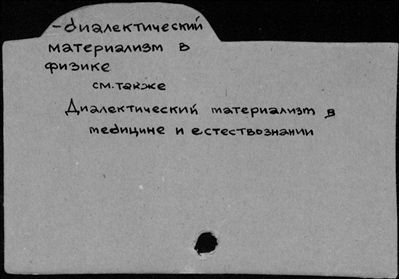 -диалектический
материализм в
физике
см. также
Диалектический материализм в
медицине и естествознании